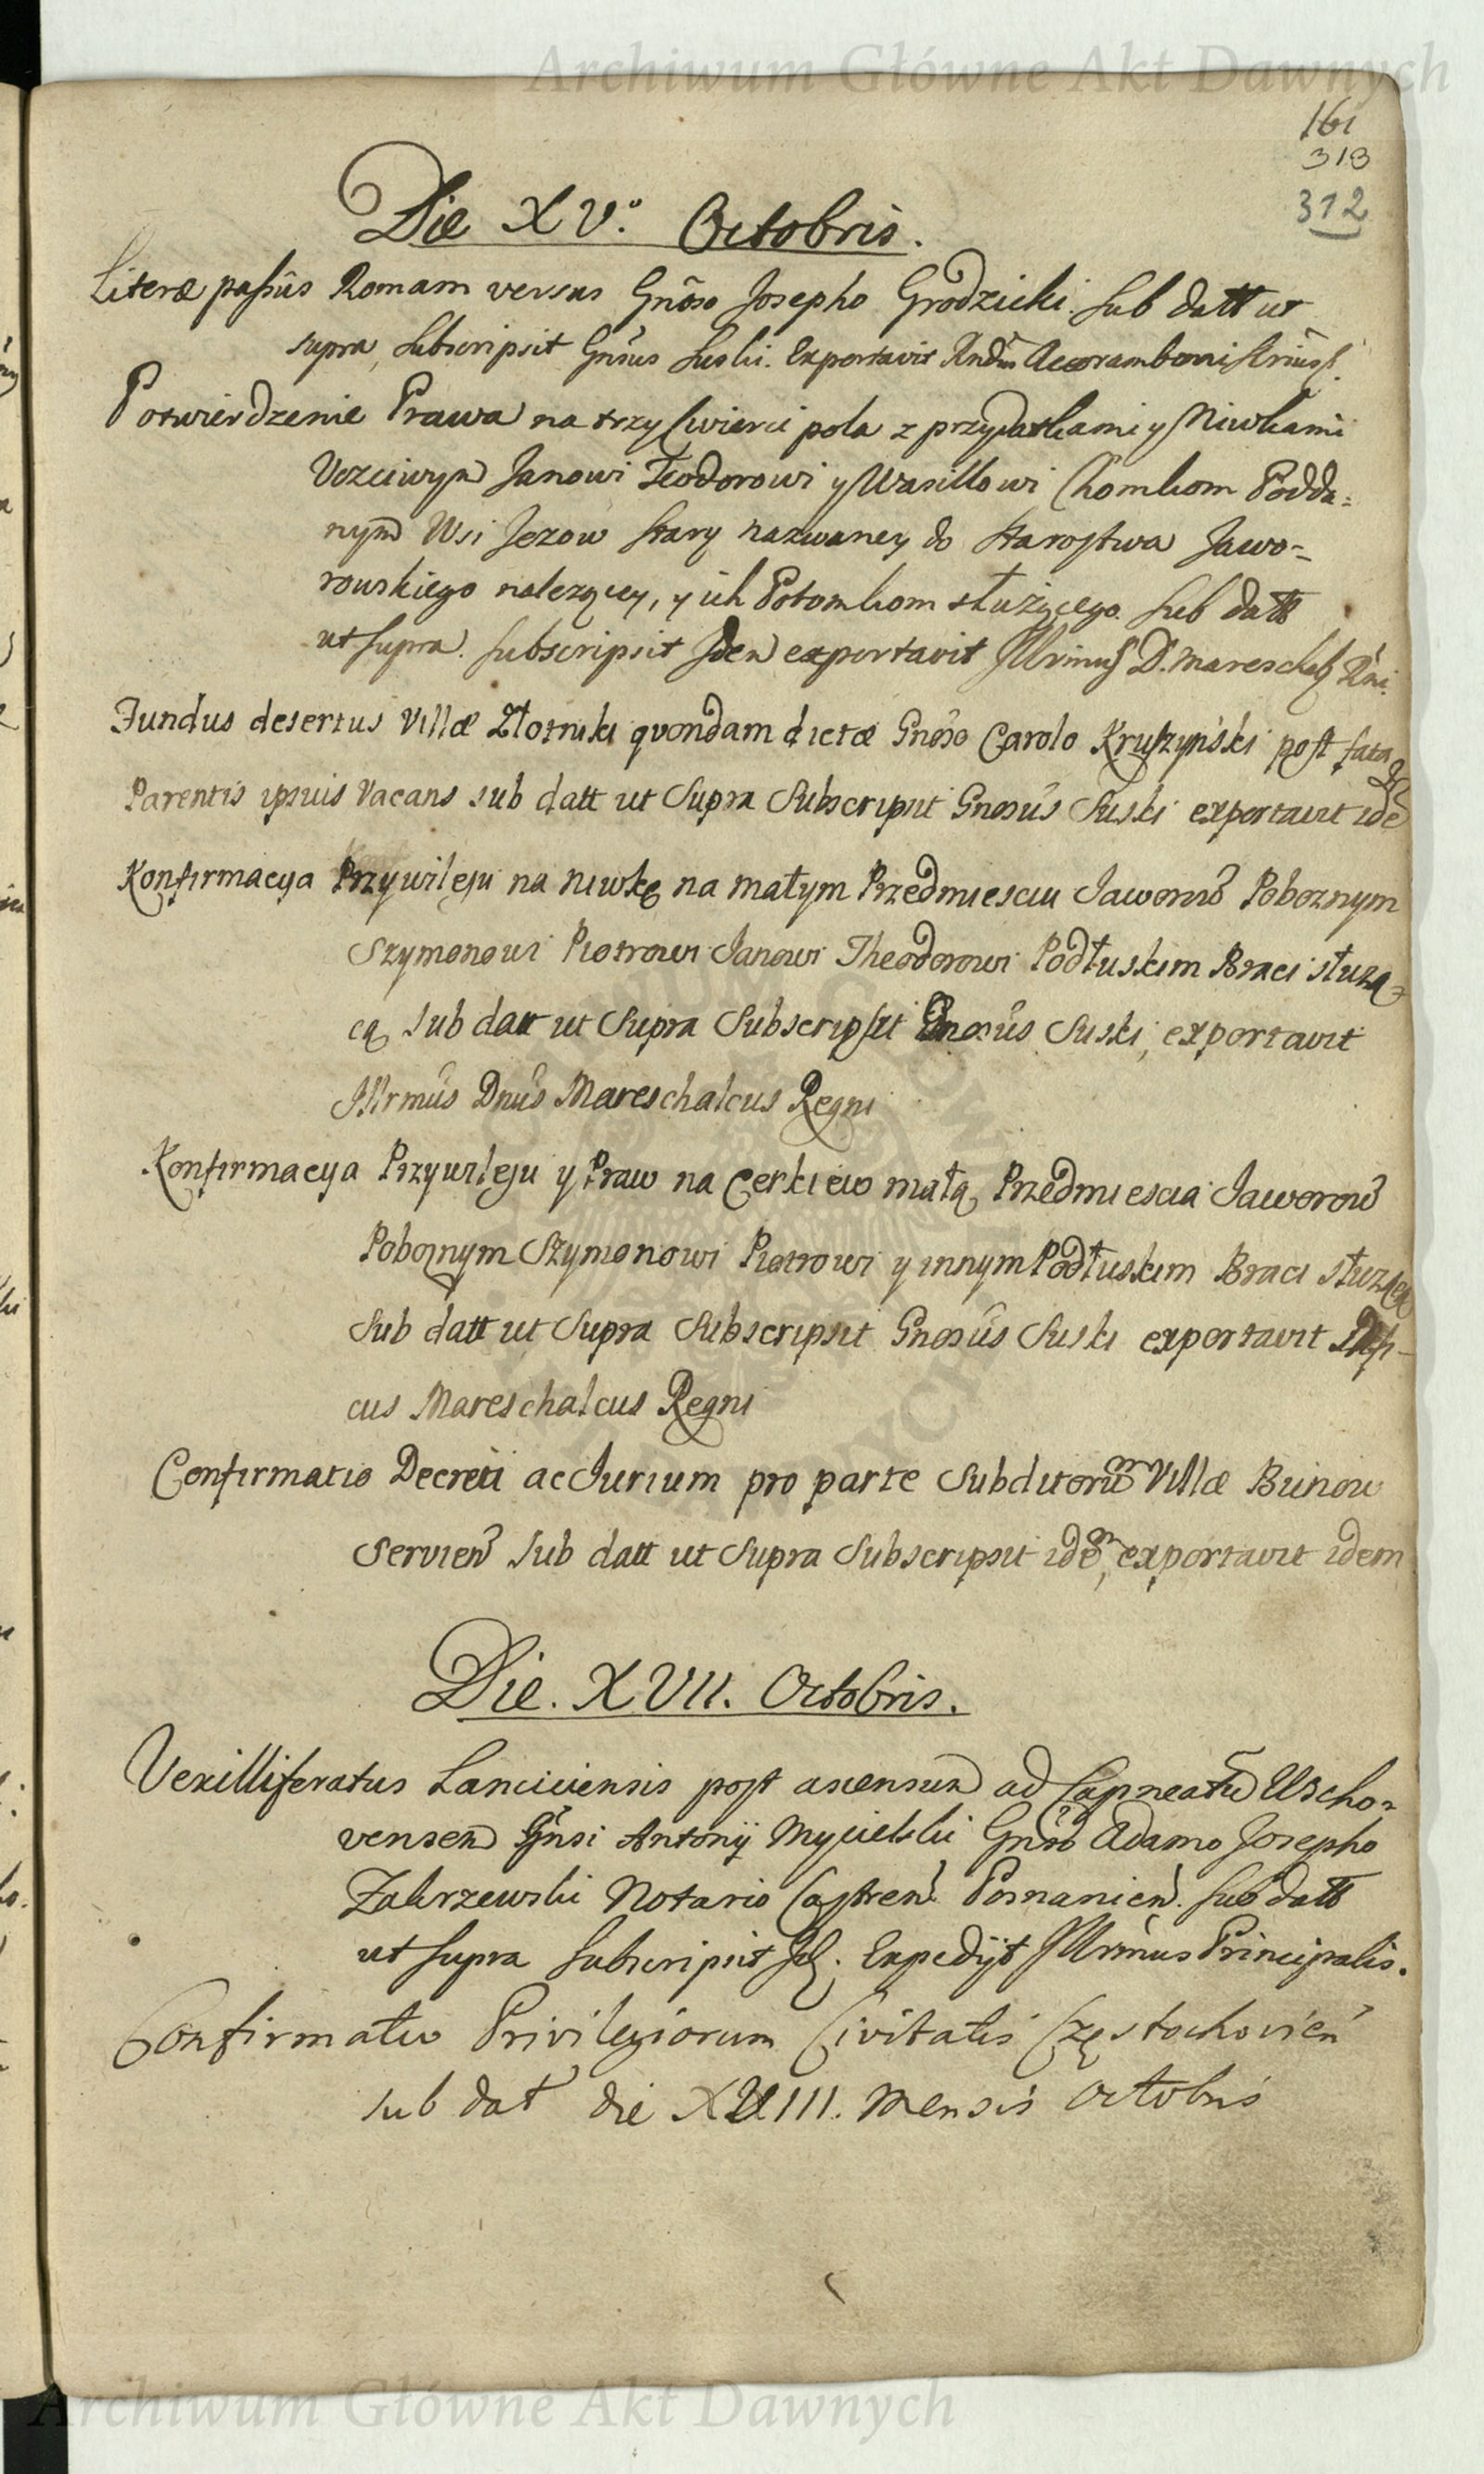 Archiwum Główne Akt Dawnych
161
313
312
Die XV.° Octobris.
Literæ passus Romam versus Gnoso Josepho Grodzicki. sub datt ut
supra, subscripsit Gnsus Suski. Exportavit Rndus Accoramboni
Potwierdzenie Prawa na trzy Cwierci pola z przydatkami y Niwkami
Uczciwym Janowi Teodorowi y Wasilowi Chomkom Podda=
nym Wsi Jezow stary nazwaney do starostwa Jawo=
rowskiego nalezącey, y ich Potomkom służącego. sub datt
ut supra. subscripsit Idem exportavit Illrimus D. Mareschals Rni.
Fundus desertus Villæ Złotniki quondam dictæ Gnoso Carolo Kruszyński post fata
Parentis ipsius Vacans sub datt ut Supra Subscripsit Gnosus Suski exportavit idē
Konfirmacya Przywileju na niwkę na małym Przedmiesciu Jaworow Poboznym
Szymonowi Piotrowi Janowi Theodorowi Podłuskim Braci służą-
cą sub datt ut Supra Subscripsit Gnosus Suski, exportavit
Illrmus Dnus Mareschalcus Regni
Konfirmacya Przywileju y Praw na Cerkiew małą Przedmiescia Jaworow
Poboznym Szymonowi Piotrowi y innym Podłuskim Braci służącą
Sub datt ut Supra Subscripsit Gnosus Suski exportavit
cus Mareschalcus Regni
Confirmatio Decreti ac Jurium pro parte Subditorum Villæ Bunow
Servien sub datt ut Supra Subscripsit idem, exportavit idem
Die. XVII. Octobris.
Vexilliferatus Lanciciensis post ascensum ad Capneatum Wscho=
vensem Gnsi Antonij Mycielski Gnso Adamo Josepho
Zakrzewski Notario Castren Posnanien. sub datt
ut supra subscripsit Id. Expedijt Illrimus Principalis.
Confirmatio Privilegiorum Civitatis Częstochovien
sub dat die XVIII. Mensis Octobris
Archiwum Główne Akt Dawnych